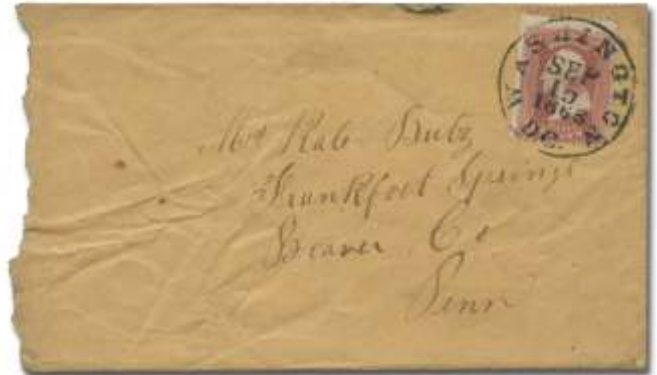 WASHINGTON
SEP
15
D.C.
Kate
Frankfort Springs
Beaver Co
Penn